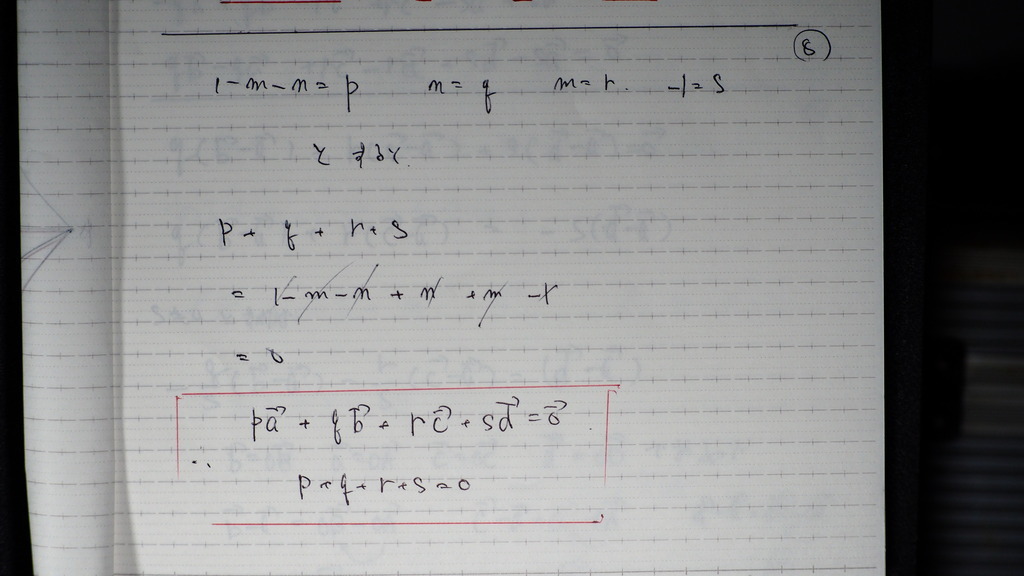 ⑧
1-m-n=p n=q m=r. -1=s
とおく.
p+q+r+s
= 1-m-n+n+m-1
= 0
pa⃗ + qb⃗ + rc⃗ + sd⃗ = 0⃗
∴
p+q+r+s=0